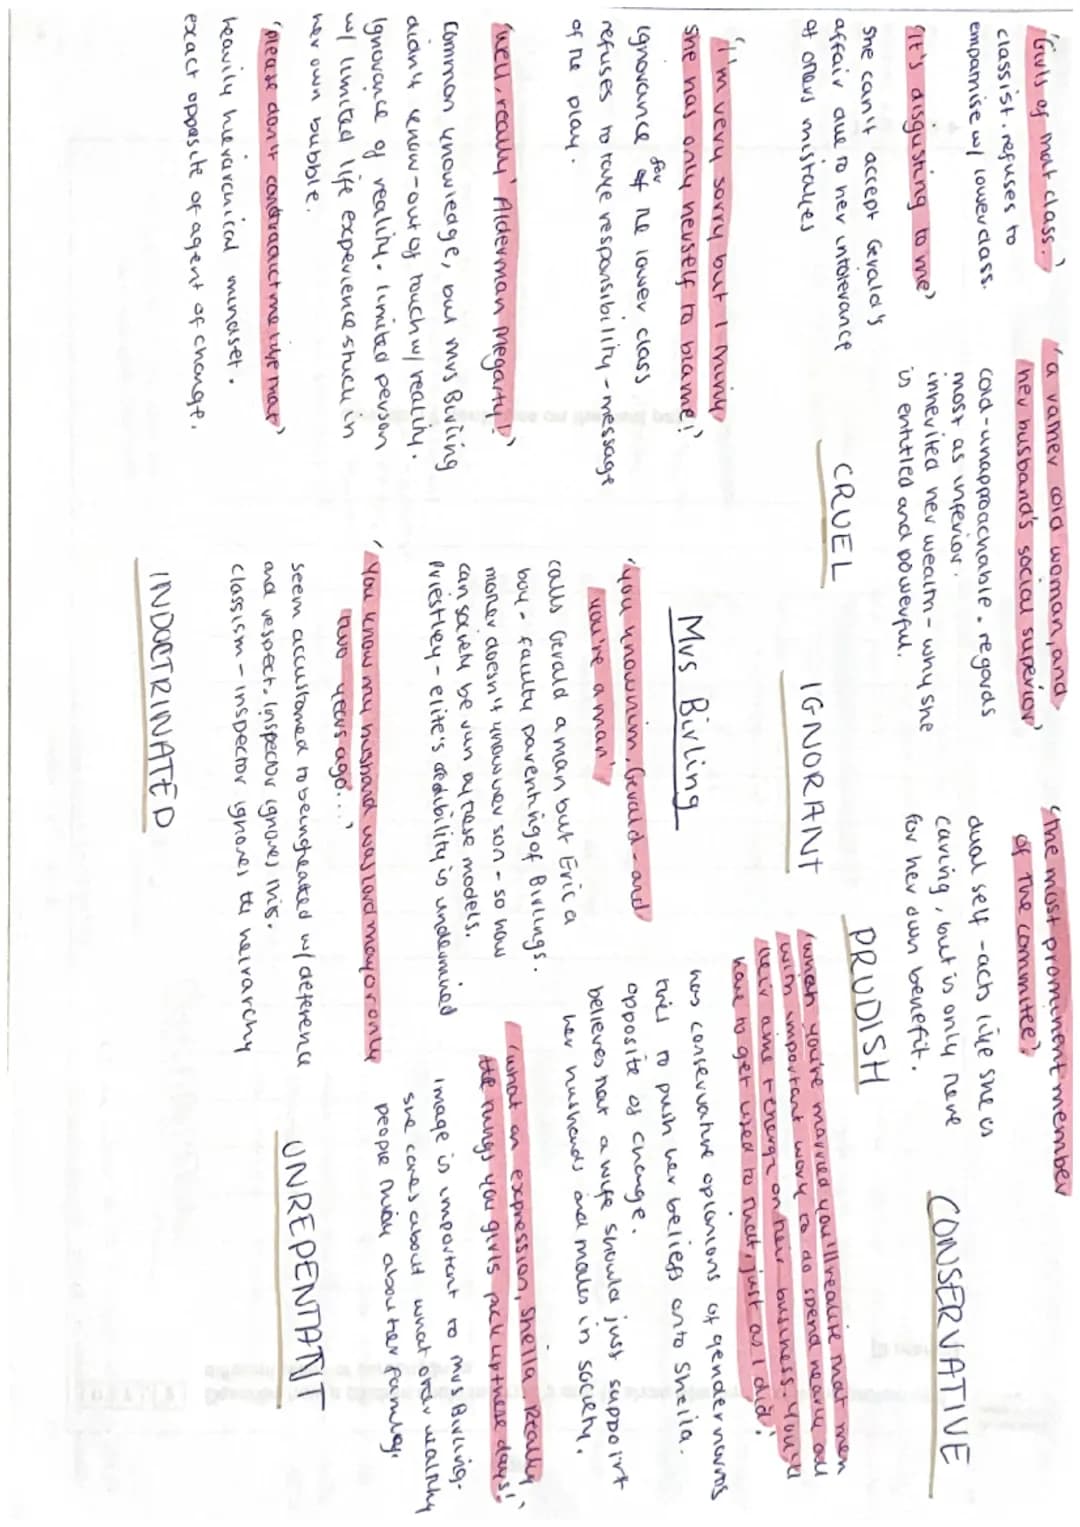 'Girls of that class.'
classist. refuses to
empathise w/ lowerclass.
'It's disgusting to me'
she can't accept Gerald's
affair due to her intolerance
of others mistakes
'I'm very sorry but I think
she has only herself to blame!'
Ignorance for of the lower class
refuses to take responsibility - message
of the play.
'well, really! Alderman Meggarty!'
common knowledge, but Mrs Birling
didn't know - out of touch w/ reality.
Ignorance of reality. limited person
w/ limited life experience stuck in
her own bubble.
'please don't contradict me like that'
heavily hierarchical mindset.
exact opposite of agent of change.
'a rather cold woman, and
her husband's social superior'
cold - unapproachable. regards
most as inferior.
inherited her wealth - why she
is entitled and powerful.
CRUEL
IGNORANT
Mrs Birling
'you know him, Gerald - and
you're a man'
calls Gerald a man but Eric a
boy - faulty parenting of Birlings.
mother doesn't know her son - so how
can society be run by these models.
Priestley - elite's credibility is undermined
'You know my husband was Lord mayor only
two years ago...'
seem accustomed to being treated w/ deference
and respect. Inspector ignores this.
classism - inspector ignores the heirarchy
INDOCTRINATED
'the most prominent member
of the commitee'
dual self - acts like she is
caring, but is only here
for her own benefit.
PRUDISH
CONSERVATIVE
'when you're married you'll realise that men
with important work to do spend nearly all
their time + energy on their business. You'll
have to get used to that, just as I did.'
has conservative opionions of gender norms
tries to push her beliefs onto Sheila.
opposite of change.
believes that a wife should just suppoirt
her husbands and males in society.
'what an expression, Sheila. Really
the things you girls pick up these days!'
image is important to mrs Birling.
she cares about what other wealthy
people think about her family.
UNREPENTANT